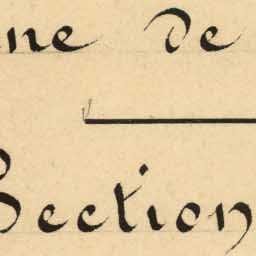 ne de
Section